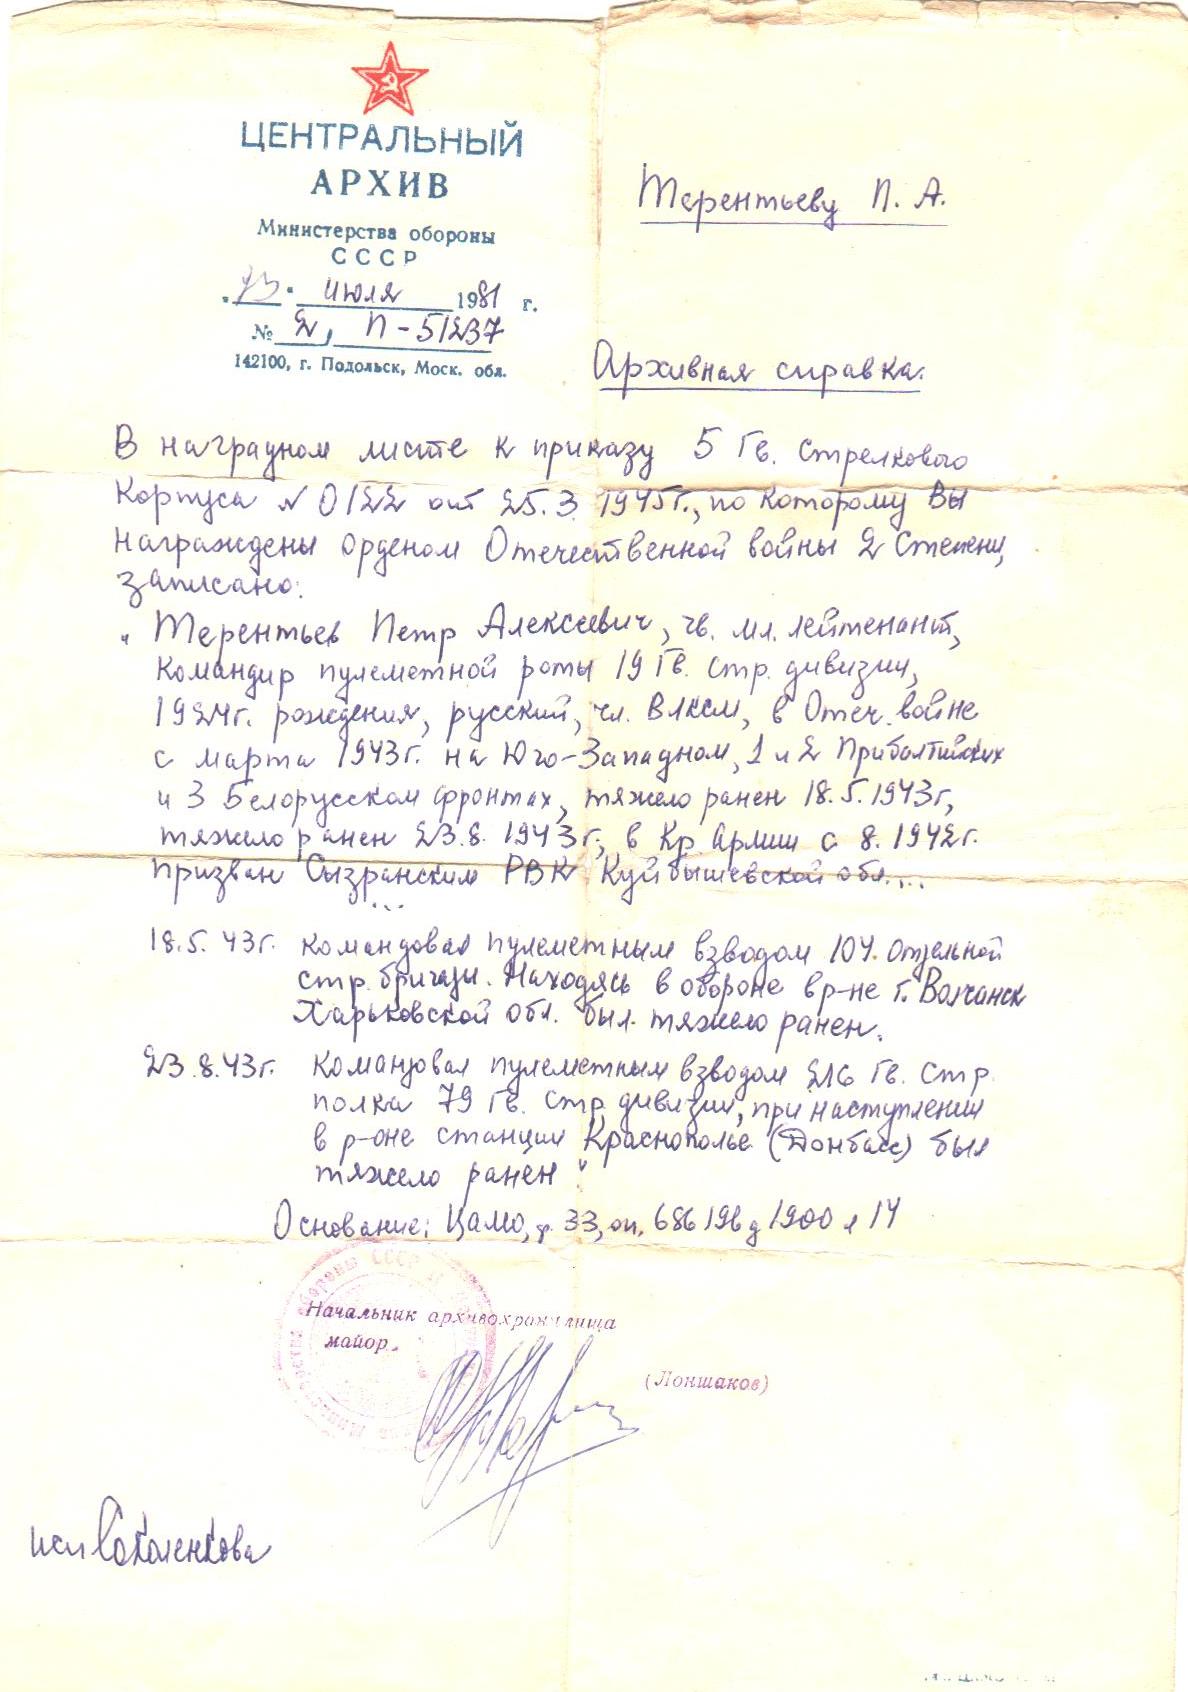 ЦЕНТРАЛЬНЫЙ
АРХИВ
Министерства обороны
СССР
"23" июля 1981 г.
№ 2, П-51237
142100, г. Подольск, Моск. обл.
Терентьеву П. А.
Архивная справка.
В наградном листе к приказу 5 Гв. Стрелкового
Корпуса N 0122 от 25.3.1945г., по которому Вы
награждены орденом Отечественной войны 2 Степени,
записано:
"Терентьев Петр Алексеевич, гв. мл. лейтенант,
командир пулеметной роты 19 Гв. стр. дивизии,
1924г. рождения, русский, чл. ВЛКСМ, в Отеч. войне
с марта 1943г. на Юго-Западном, 1 и 2 Прибалтийских
и 3 Белорусском фронтах, тяжело ранен 18.5.1943г,
тяжело ранен 23.8.1943г, в Кр. Армии с 8.1942г.
призван Сызранским РВК Куйбышевской обл...
...
18.5.43г. командовал пулеметным взводом 104. отдельной
стр. бригады. Находясь в обороне в р-не г. Волчанск
Харьковской обл. был тяжело ранен.
23.8.43г. командовал пулеметным взводом 216 Гв. стр.
полка 79 Гв. стр. дивизии, при наступлении
в р-оне станции Краснополье (Донбасс) был
тяжело ранен"
Основание: ЦАМО, ф. 33, оп. 686196 д 1900 л 14
Начальник архивохранилища
майор
(Лоншаков)
исп Соколенкова